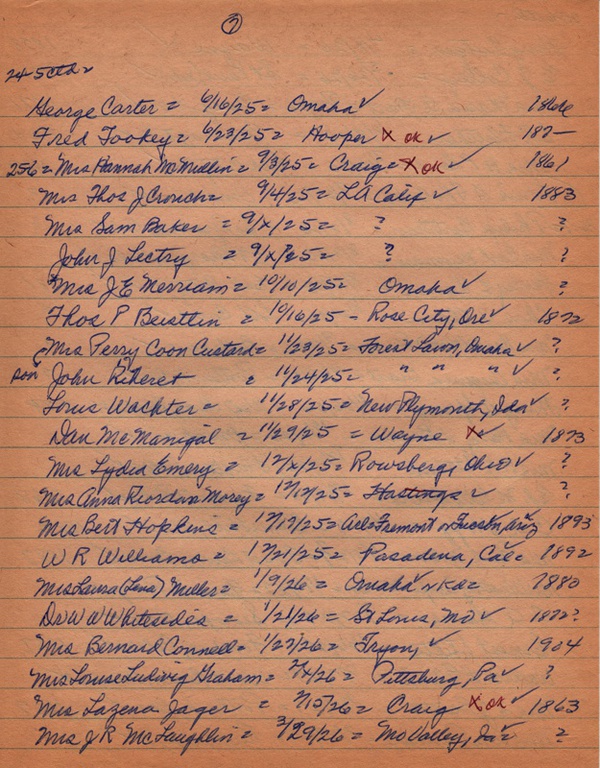 7
24-5 Ctd =
George Carter = 6/16/25 = Omaha ✓ 1866
Fred Tookey = 6/23/25 = Hooper X OK ✓ 187—
256 = Mrs Hannah McMullin = 9/3/25 = Craig = X OK ✓ 1861
Mrs Thos J Crouch = 9/4/25 = LA Calif ✓ 1883
Mrs Sam Baker = 9/x/25 = ? ?
John J Lectry = 9/x/25 = ? ?
Mrs J E Merriam = 10/10/25 = Omaha ✓ ?
Thos P Beistlin = 10/16/25 - Rose City, Ore ✓ 1872
Mrs Perry Coon Custard = 11/23/25 = Forest Lawn, Omaha ✓ ?
son John = 11/24/25 = " " " ✓ ?
Louis Wachter = 11/28/25 = New Plymouth, Ida ✓ ?
Dan McManigal = 11/29/25 = Wayne X 1873
Mrs Lydia Emery = 12/x/25 = Rowsberg, Ohio ✓ ?
Mrs Anna Riordan Morey = 12/12/25 = Hastings ✓ ?
Mrs Bert Hopkins = 12/17/25 = Fremont or Tucson, Ariz 1893
W R Williams = 12/21/25 = Pasadena, Cal = 1892
Mrs Laura (Lena) Miller = 1/9/26 = Omaha ✓ 1880
Dr W W Whitesides = 1/21/26 = St Louis, Mo ✓ 1872?
Mrs Bernard Connell = 1/27/26 = Tryon, ✓ 1904
Mrs Louise Ludwig Graham = 2/x/26 = Pittsburg, Pa ✓ ?
Mrs Lazena Jager = 2/15/26 = Craig X OK ✓ 1863
Mrs J R McLaughlin = 3/29/26 = Mo Valley, Ia ✓ ?